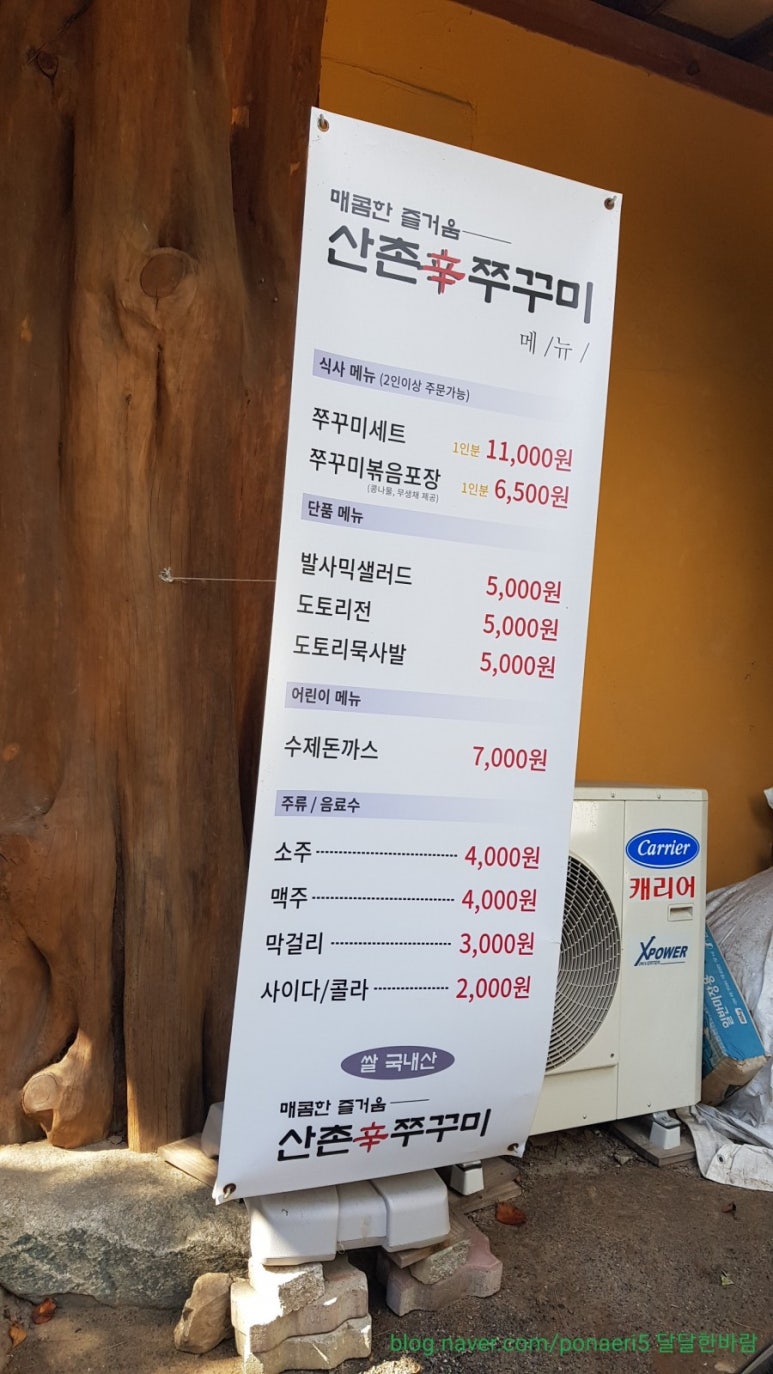 매콤한 즐거움
산촌辛쭈꾸미
메/뉴/
식사 메뉴 (2인이상 주문가능)
쭈꾸미세트 1인분 11,000원
쭈꾸미볶음포장 1인분 6,500원
(콩나물, 무생채 제공)
단품 메뉴
발사믹샐러드 5,000원
도토리전 5,000원
도토리묵사발 5,000원
어린이 메뉴
수제돈까스 7,000원
주류 / 음료수
소주 4,000원
맥주 4,000원
막걸리 3,000원
사이다/콜라 2,000원
쌀 국내산
매콤한 즐거움
산촌辛쭈꾸미
Carrier
캐리어
XPOWER
INVERTER
blog.naver.com/ponaeri5 달달한바람